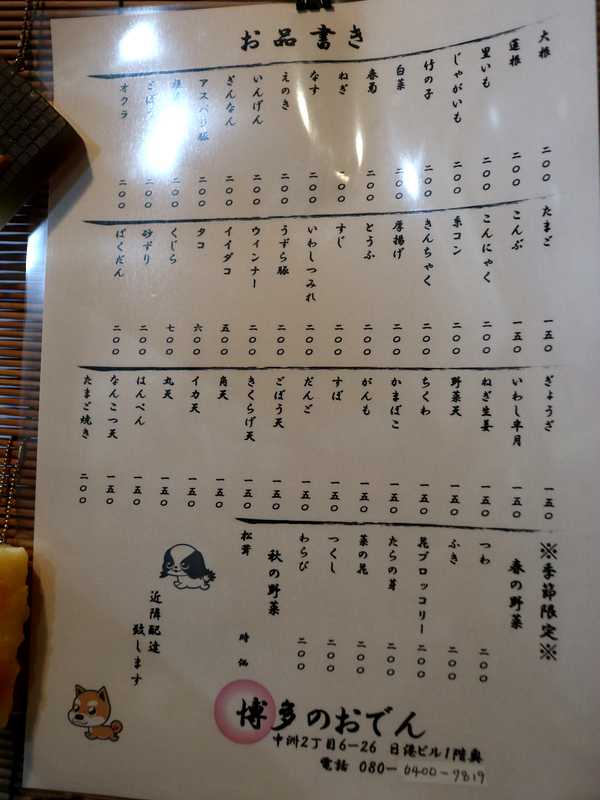 お品書き
大根 二〇〇
蓮根 二〇〇
里いも 二〇〇
じゃがいも 二〇〇
竹の子 二〇〇
白菜 二〇〇
春菊 二〇〇
ねぎ 二〇〇
なす 二〇〇
えのき 二〇〇
いんげん 二〇〇
ぎんなん 二〇〇
アスパラ豚 二〇〇
二〇〇
ごぼう 二〇〇
オクラ 二〇〇
たまご 一五〇
こんぶ 一五〇
こんにゃく 二〇〇
糸コン 二〇〇
きんちゃく 二〇〇
厚揚げ 二〇〇
とうふ 二〇〇
すじ 二〇〇
いわしつみれ 二〇〇
うずら豚 二〇〇
ウィンナー 二〇〇
イイダコ 五〇〇
タコ 六〇〇
くじら 七〇〇
砂ずり 二〇〇
ばくだん 二〇〇
ぎょうざ 一五〇
いわし半月 一五〇
ねぎ生姜 一五〇
野菜天 一五〇
ちくわ 一五〇
かまぼこ 一五〇
がんも 一五〇
すぼ 一五〇
だんご 一五〇
ごぼう天 一五〇
きくらげ天 一五〇
角天 一五〇
イカ天 一五〇
丸天 一五〇
はんぺん 一五〇
なんこつ天 一五〇
たまご焼き 二〇〇
※季節限定※
春の野菜
つわ 二〇〇
ふき 二〇〇
ブロッコリー 二〇〇
たらの芽 二〇〇
菜の花 二〇〇
つくし 二〇〇
わらび 二〇〇
秋の野菜
松茸 時価
近隣配達
致します
博多のおでん
中洲2丁目6-26 日港ビル1階奥
電話 080-6400-9819